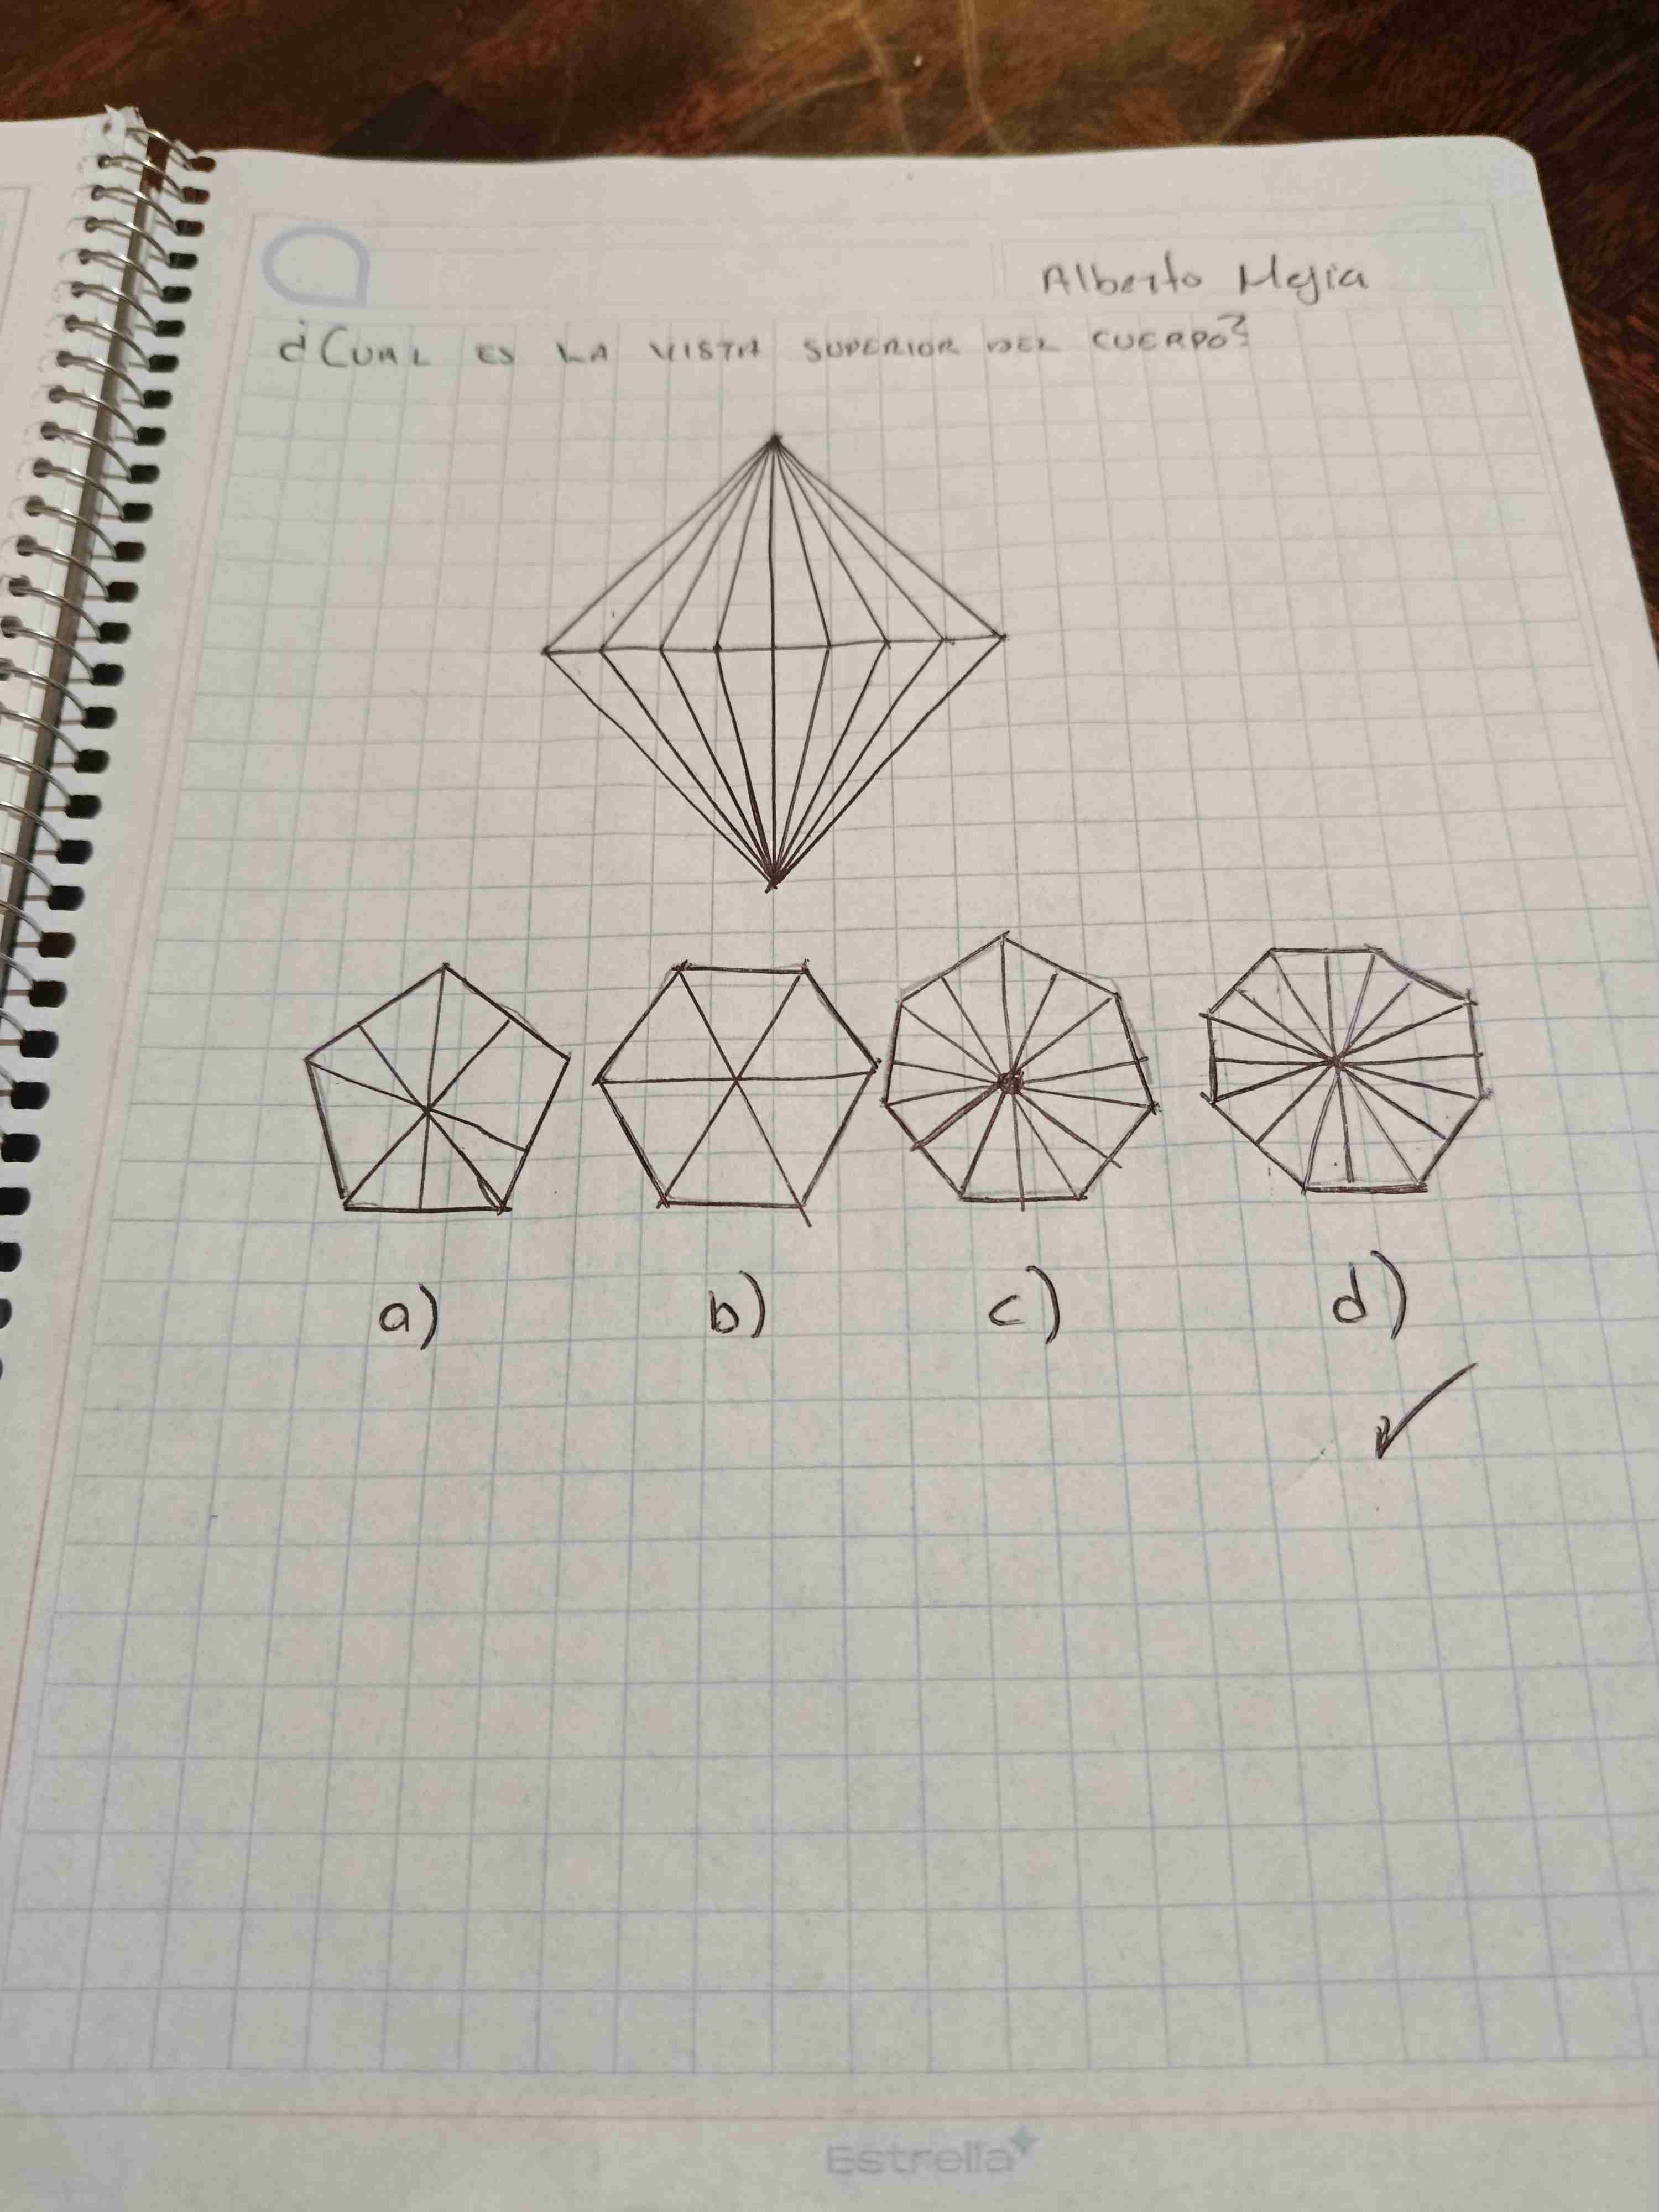 Alberto Mejia
¿CUAL ES LA VISTA SUPERIOR DEL CUERPO?
a) b) c) d)
Estrella